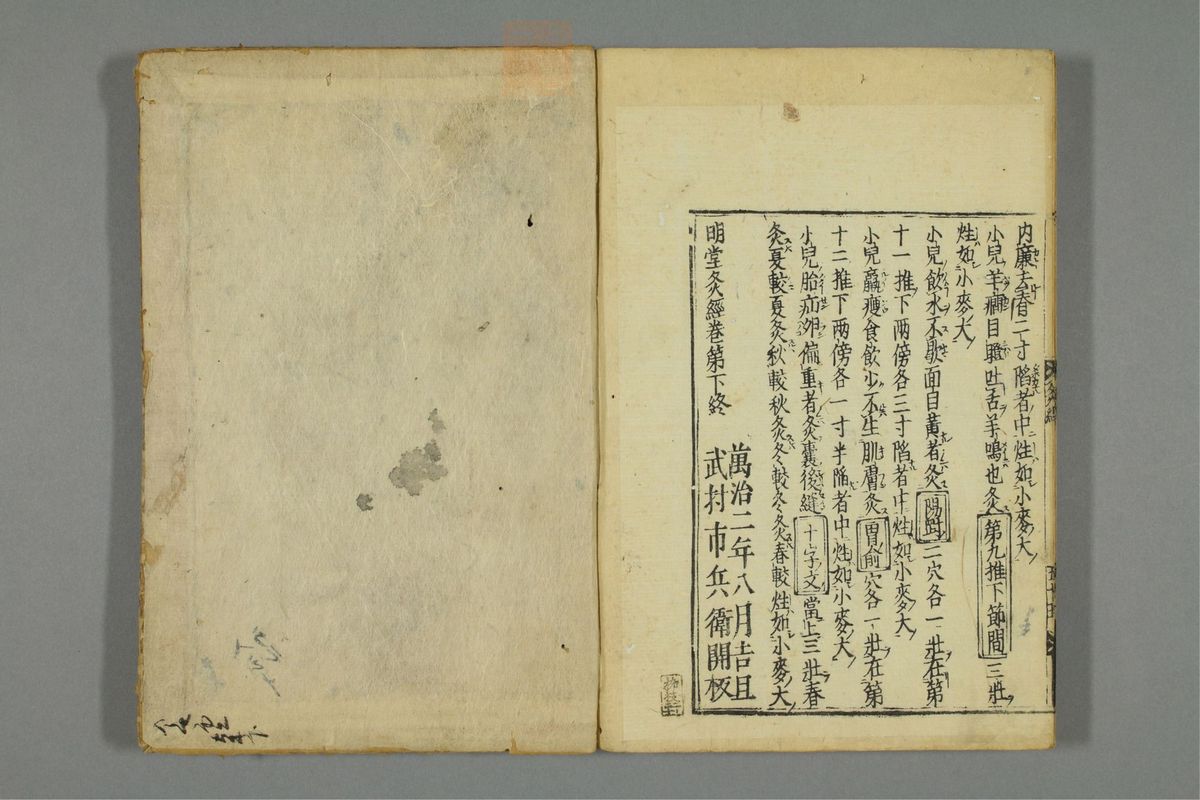 内廉去脊二寸陷者中炷如小麥大
小兒羊癇目瞪吐舌羊鳴也灸第九推下節間三壯
炷如小麥大
小兒飲水不歇面目黃者灸陽剛二穴各一壯在第
十一推下兩傍各三寸陷者中炷如小麥大
小兒羸瘦食飲少不生肌膚灸胃俞穴各一壯在第
十二推下兩傍各一寸半陷者中炷如小麥大
小兒胎疝卵偏重者灸囊後縫十字文當上三壯春
灸夏較夏灸秋較秋灸冬較冬灸春較炷如小麥大
明堂灸經卷第下終
萬治二年八月吉旦
武村市兵衛開板